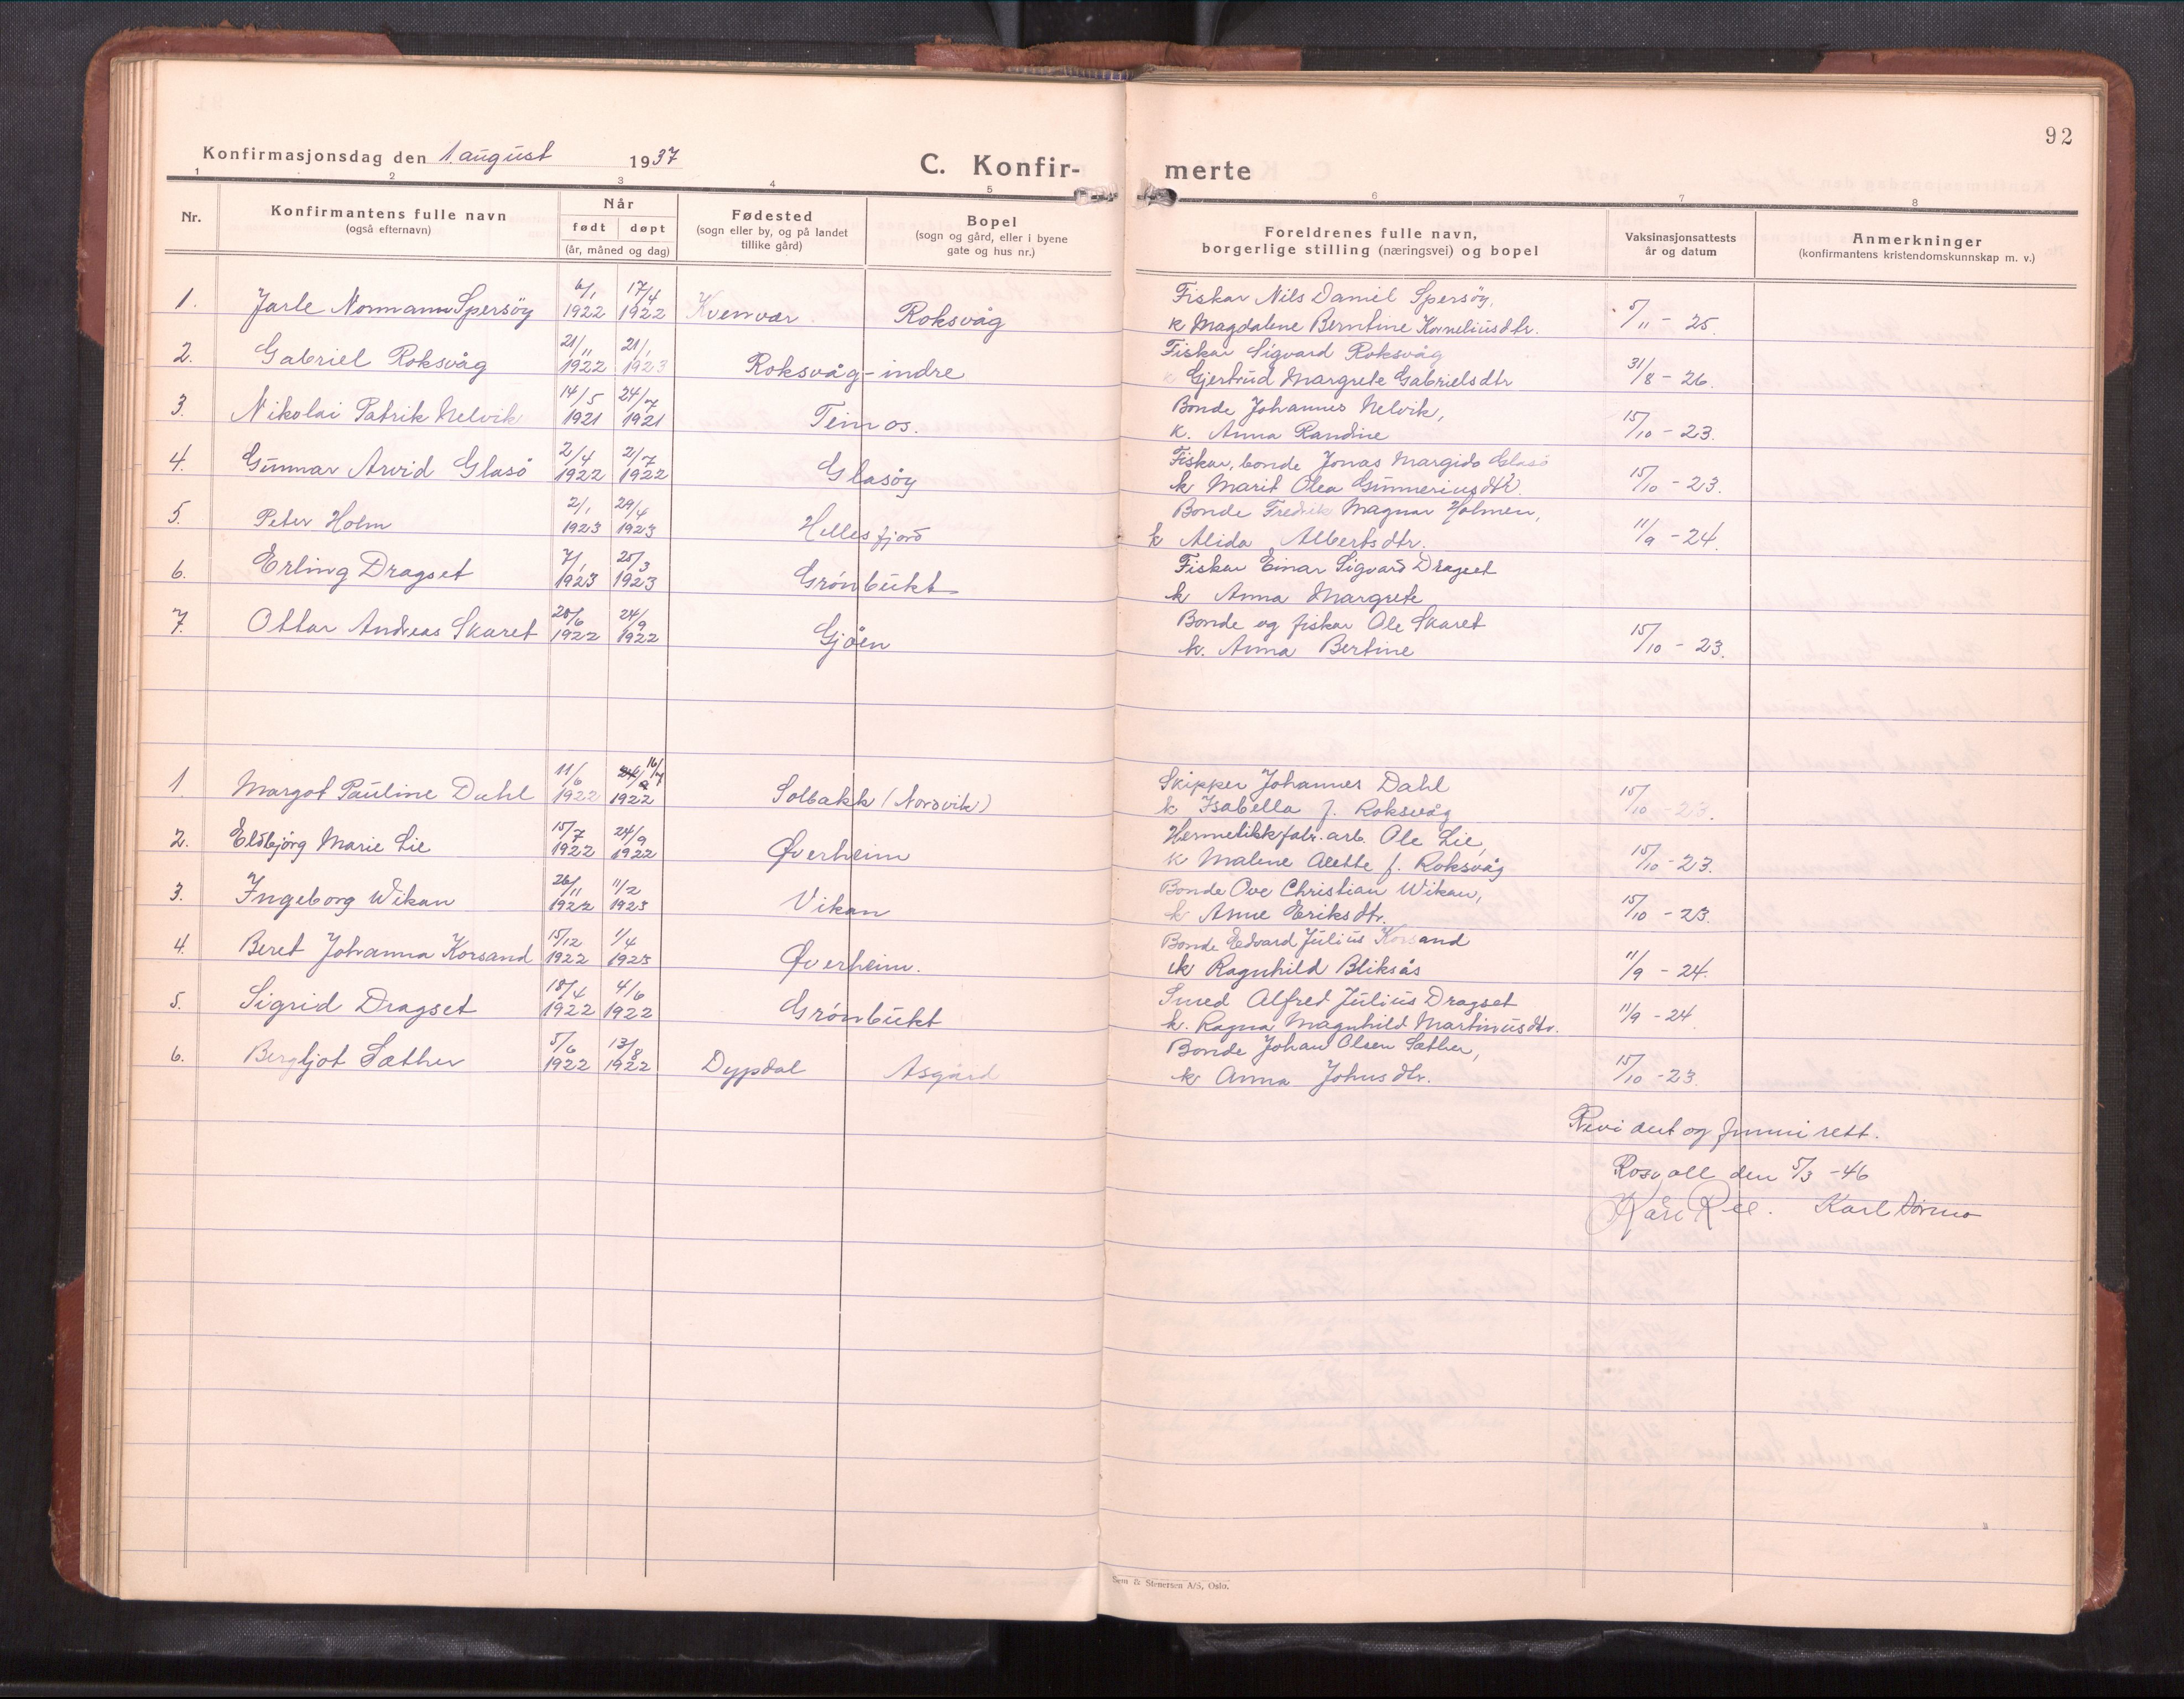 92
Konfirmasjonsdag den 1. august 1937
C. Konfirmerte
1 2 3 4 5 6 7 8
Nr.
Konfirmantens fulle navn
(også efternavn)
Når
født døpt
(år, måned og dag)
Fødested
(sogn eller by, og på landet
tillike gård)
Bopel
(sogn og gård, eller i byene
gate og hus nr.)
Foreldrenes fulle navn,
borgerlige stilling (næringsvei) og bopel
Vaksinasjonsattests
år og datum
Anmerkninger
(konfirmantens kristendomskunnskap m. v.)
1. Jarle Normann Spersöy 6/1 1922 17/4 1922 Kvenvær Roksvåg Fiskar Nils Daniel Spersöy,
k Magdalene Berntine Korneliusdtr. 5/11 - 25.
2. Gabriel Roksvåg 21/11 1922 21/1 1923 Roksvåg-indre Fiskar Sigvard Roksvåg
k Gjertrud Margrete Gabrielsdtr 31/8 - 26.
3. Nikolai Patrik Nelvik 14/5 1921 24/7 1921 Teimos. Bonde Johannes Nelvik,
k. Anna Randine 15/10 - 23.
4. Gunnar Arvid Glasö 2/4 1922 2/7 1922 Glasöy Fiskar, bonde Jonas Margido Glasö
k Marit Olea Gunneriusdtr. 15/10 - 23.
5. Peter Holm 2/1 1923 29/4 1923 Hellesfjord Bonde Fredrik Magnar Holmen,
k Alida Albertsdtr. 11/9 - 24.
6. Erling Dragset 7/1 1923 25/3 1923 Grönbukt Fiskar Einar Sigvard Dragset
k Anna Margrete
7. Ottar Andreas Skaret 20/6 1922 24/9 1922 Gjöen Bonde og fiskar Ole Skaret
k. Anna Bertine 15/10 - 23.
1. Margot Pauline Dahl 11/6 1922 24/9 16/7 1922 Solbakk (Nordvik) Skipper Johannes Dahl
k Isabella f. Roksvåg 15/10 - 23.
2. Eldbjörg Marie Lie 15/7 1922 24/9 1922 Øverheim Hermetikkfabr. arb. Ole Lie,
k Malene Alette f. Roksvåg 15/10 - 23.
3. Ingeborg Wikan 26/11 1922 11/2 1923 Vikan Bonde Ove Christian Wikan,
k Anne Eriksdtr. 15/10 - 23.
4. Beret Johanna Korsand 15/12 1922 1/4 1923 Øverheim. Bonde Edvard Julius Korsand
k Ragnhild Bliksås 11/9 - 24.
5. Sigrid Dragset 18/4 1922 4/6 1922 Grönbukt Smed Alfred Julius Dragset
k. Ragna Magnhild Martinusdtr. 11/9 - 24
6. Bergljot Sæther 5/6 1922 13/8 1922 Dypdal Asgård Bonde Johan Olsen Sæther,
k Anna Johnsdtr. 15/10 - 23.
Revidert og funni rett.
Rosvoll den 5/3 - 46
Kåre Karl
Sem & Stenersen A/S, Oslo.